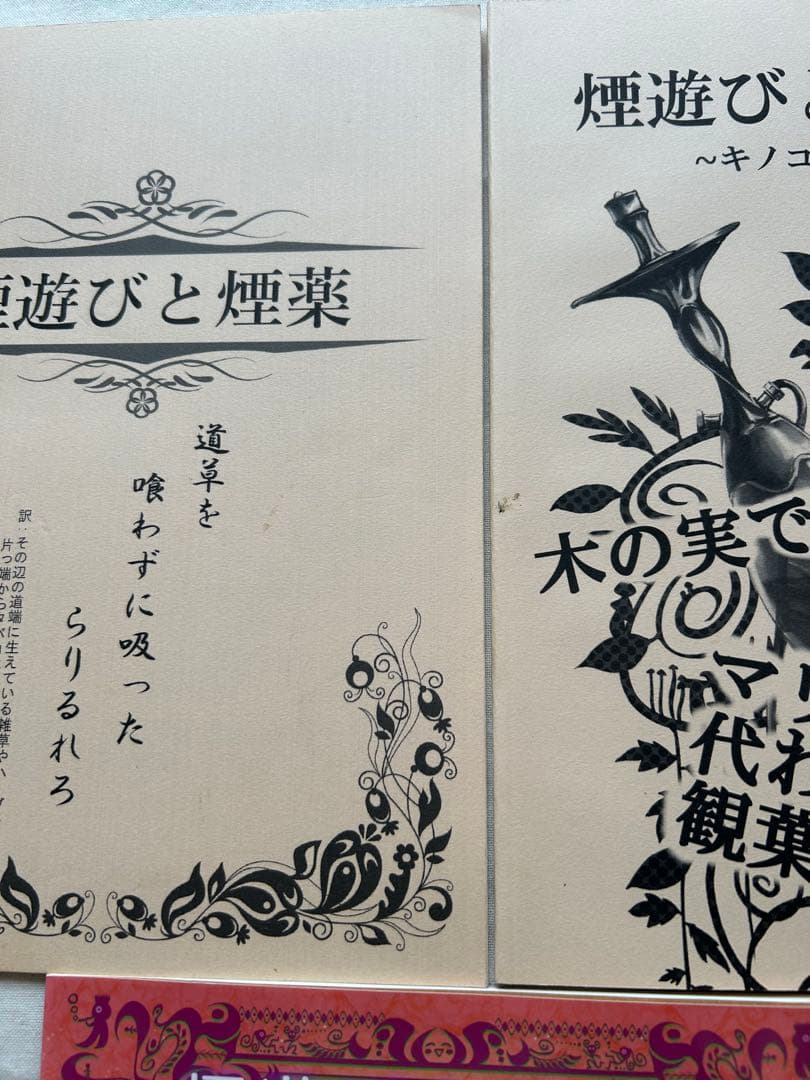 遊びと煙薬
道草を
喰わずに吸った
らりるれろ
訳:その辺の道端に生えている雑草やハ
片っ端から
煙遊びと
~キノコ
木の実で
マリ
代わ
観葉